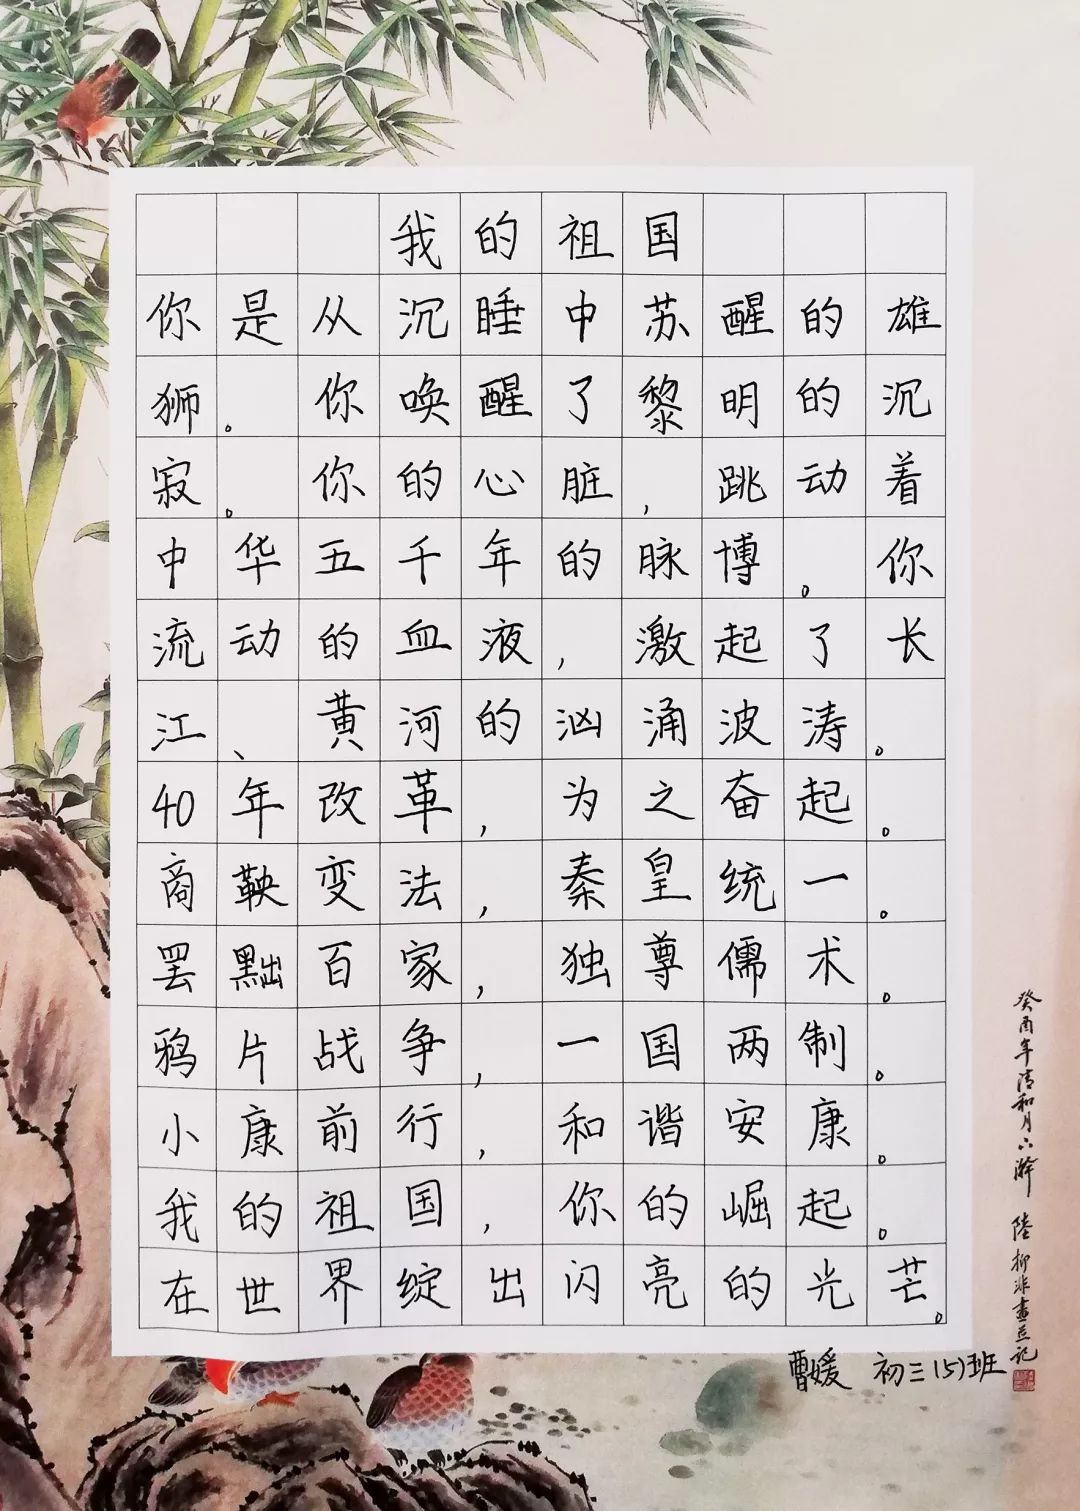 我的祖国
你是从沉睡中苏醒的雄
狮。你唤醒了黎明的沉
寂。你的心脏,跳动着
中华五千年的脉博。你
流动的血液,激起了长
江、黄河的汹涌波涛。
40年改革,为之奋起。
商鞅变法,秦皇统一。
罢黜百家,独尊儒术。
鸦片战争,一国两制。
小康前行,和谐安康。
我的祖国,你的崛起。
在世界绽出闪亮的光芒。
曹媛 初三(5)班
癸酉年清和月下澣 陸抑非畫并记